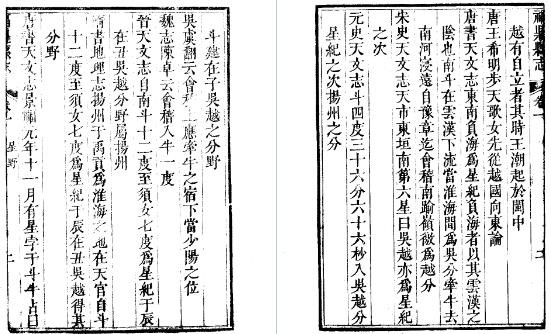 縣志
越有自立者其時王潮起於閩中
唐王希明步天歌女先從越國向東論
唐書天文志東南負海爲星紀負海者以其雲漢之
陰也南斗在雲漢下流當淮海間爲吳分牽牛去
南河寖遠自豫章迄會稽南踰嶺徼爲越分
宋史天文志天市東垣南第六星曰吳越亦爲星紀
之次
元史天文志斗四度三十六分六十六秒入吳越分
星紀之次揚州之分
斗建在子吳越之分野
吳虞翻云會稽上應牽牛之宿下當少陽之位
魏志陳卓云會稽入牛一度
晉天文志自南斗十二度至須女七度爲星紀于辰
在丑吳越分野屬揚州
隋書地理志揚州于禹貢爲淮海之地在天官自斗
十二度至須女七度爲星紀于辰在丑吳越得其
分野
唐書天文志景福元年十一月有星孛于斗牛占曰
星野